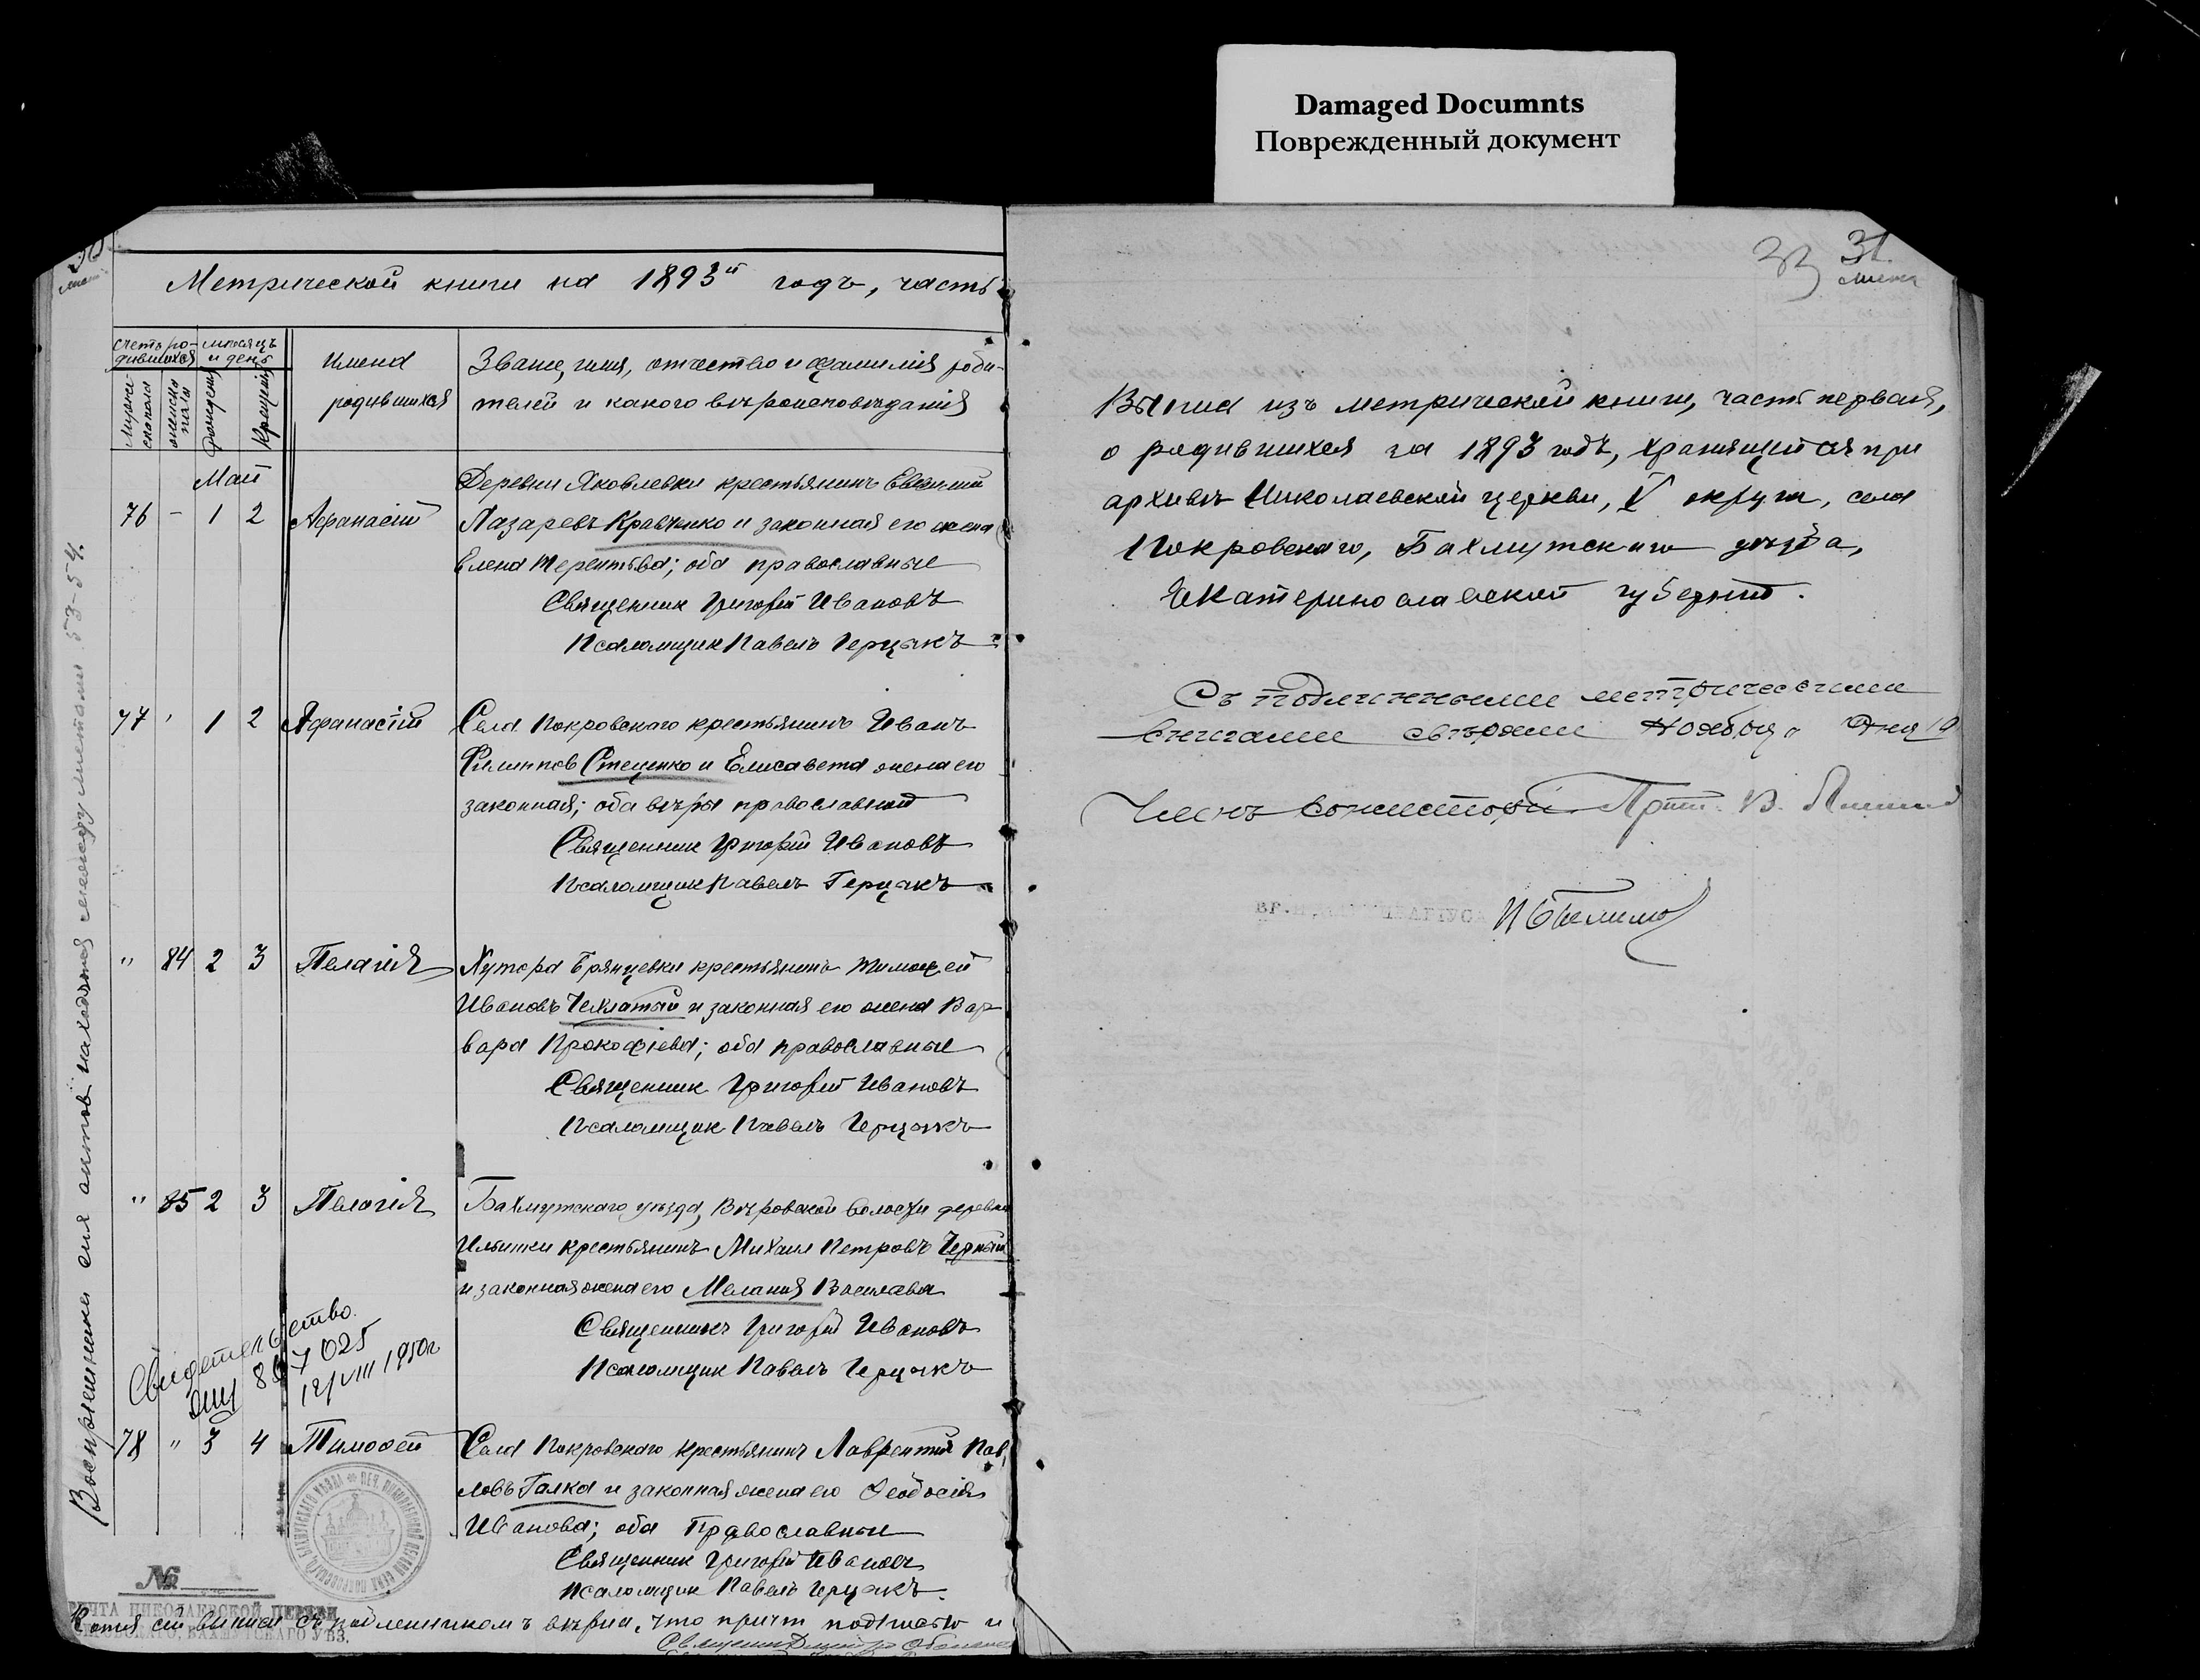 Damaged Documnts
Поврежденный документ
Метрической книги на 1893й годъ, часть
счетъ ро-
дившихся
мѣсяцъ
и день
Мужескаго пола
женска пола
рожденія
крещенія
имена
родившихся
Званіе, имя, отчество и фамилія роди-
телей и какого вѣроисповѣданія
Май
76 - 1 2 Афанасій
Деревни Яковлевки крестьянинъ Евѳимий
Лазаревъ Кравченко и законная его жена
Елена Терентьева; оба православные
Священник Григорій Ивановъ
Псаломщик Павелъ Герцакъ
77 1 2 Афанасій
Села Покровскаго крестьянинъ Иванъ
Филиппов Стеценко и Елисавета жена его
законная; оба вѣры православной
Священник Григорій Ивановъ
Псаломщик Павелъ Герцакъ
" 84 2 3 Пелагія
Хутора Брянцевки крестьянинъ Тимоѳей
Ивановъ Чехлатый и законная его жена Вар
вара Прокофіева; оба православные
Священник Григорій Ивановъ
Псаломщик Павелъ Герцакъ
" 85 2 3 Пелагія
Бахмутскаго уѣзда, Вѣровской волости деревни
Ильинки крестьянинъ Михаил Петровъ Черный
и законная жена его Мелания Василева
Священникъ Григорій Ивановъ
Псаломщик Павелъ Герцакъ
Свидетельство
867025
12/VIII 1950г
78 " 3 4 Тимоѳей
Села Покровскаго крестьянинъ Лаврентій Пав
ловъ Галка и законная жена его Ѳеодосія
Иванова; оба Православные
Священник Григорій Ивановъ
Псаломщик Павелъ Герцакъ.
№
Копия сей выписи съ подлинникомъ вѣрна, что причт подписью и
Воспріемники сия актов находятся между листами 53-54.
33 31.
листъ
Выпись изъ метрической книги, часть первая,
о родившихся за 1893 годъ, хранящейся при
архивѣ Николаевской церкви, V округа, села
Покровскаго, Бахмутскаго уѣзда,
Екатеринославской губерніи.
Съ подлинными метрическими
книгами свѣряли Ноября Дня 10
Членъ Консисторіи Прот. В.